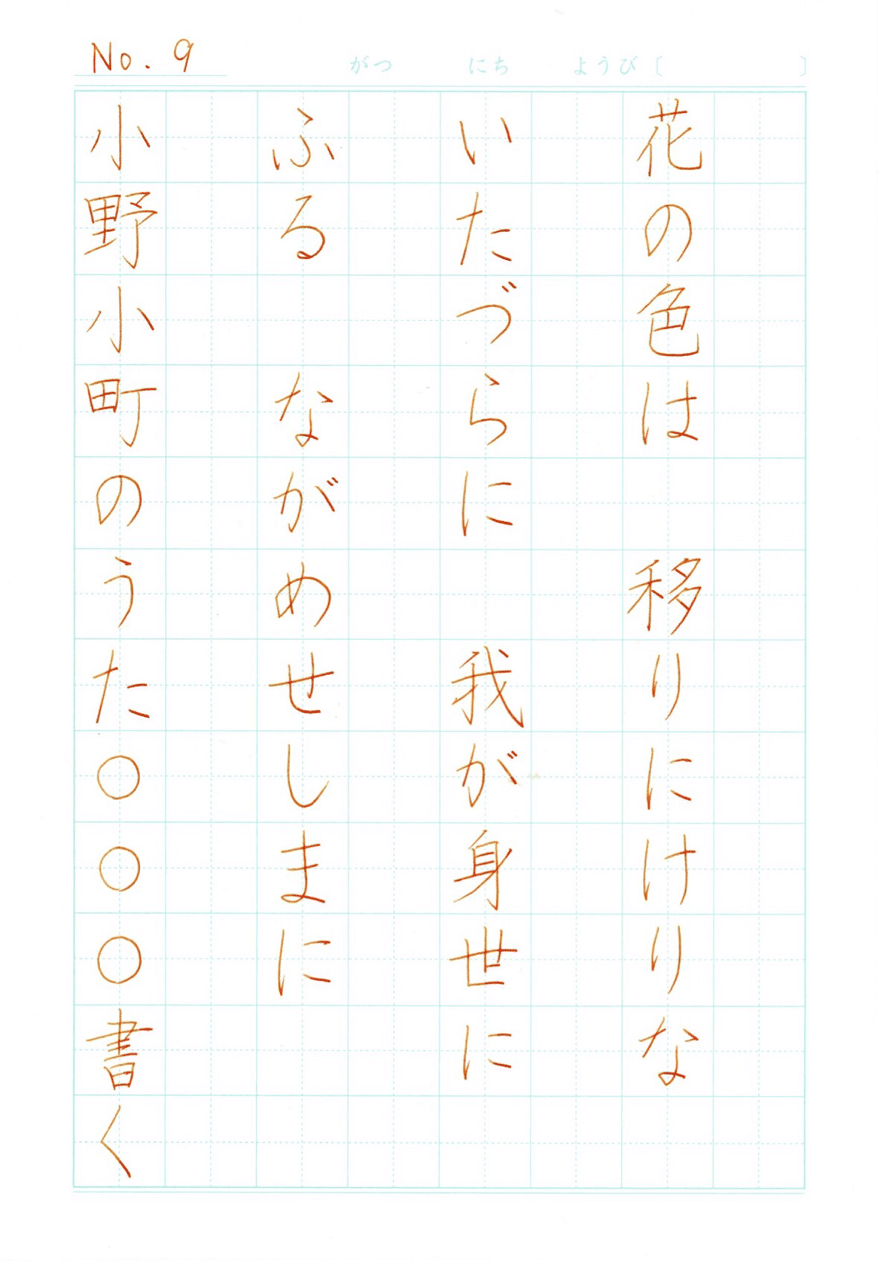 No. 9
がつ にち ようび〔 〕
花の色は 移りにけりな
いたづらに 我が身世に
ふる ながめせしまに
小野小町のうた○○○書く